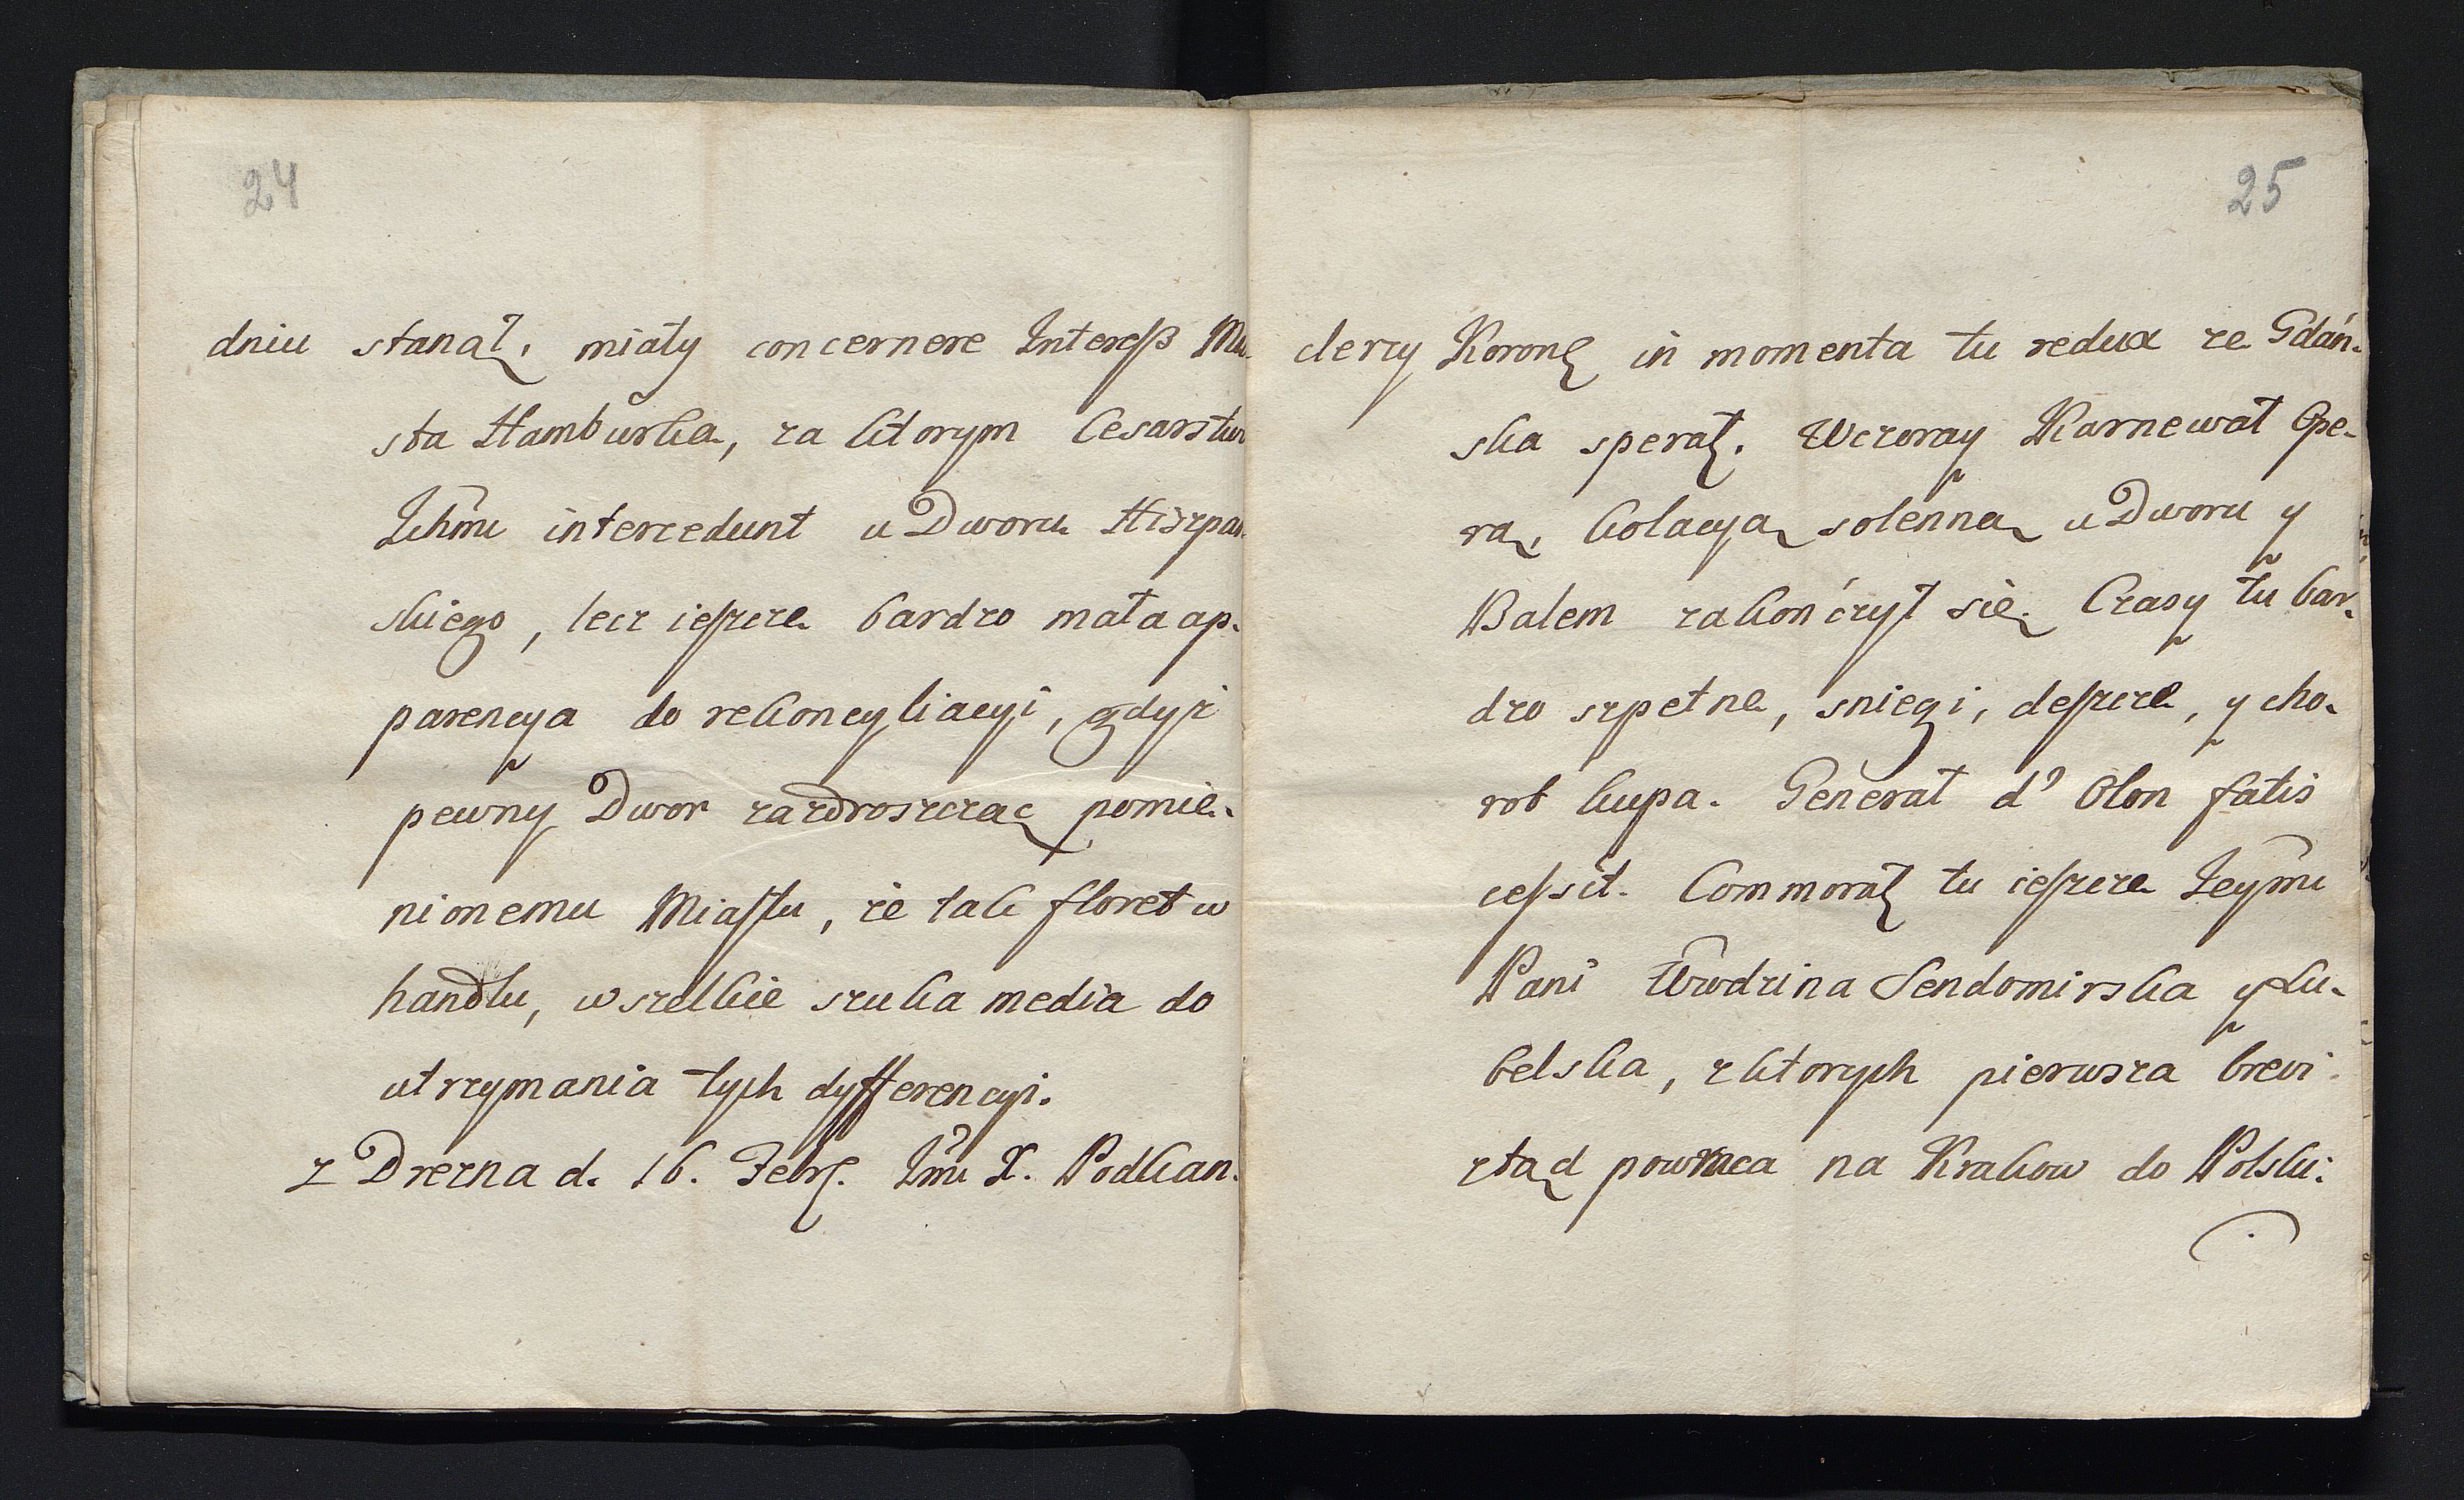 24
dniu stanął, miały concernere Interess Mia-
sta Hamburka, za ktorym Cesarstwo
Ichmć intercedunt u Dworu Hiszpań-
skiego, lecz ieszcze bardzo mała ap-
parencya do rekoncyliacyi, gdyż
pewny Dwor zazdroszcząc pomie-
nionemu Miastu, że tak floret w
handlu, wszelkie szuka media do
utrzymania tych dyfferencyi.
z Drezna d. 16. Febr. Jmć X. Podkan-
25
clerzy Koronę in momenta tu redux ze Gdań-
ska sperat. Wczoray Karnewał Ope-
rą, kolacyą solenną u Dworu y
Balem zakończył się. Czasy tu bar-
dzo szpetne, sniegi, deszcze, y cho-
rob kupa. Generał d' Olon fatis
cessit. Commorat tu ieszcze Jeymć
Pani Wwdzina Sendomirska y Lu-
belska, z ktorych pierwsza brevi
ztąd powraca na Krakow do Polski.